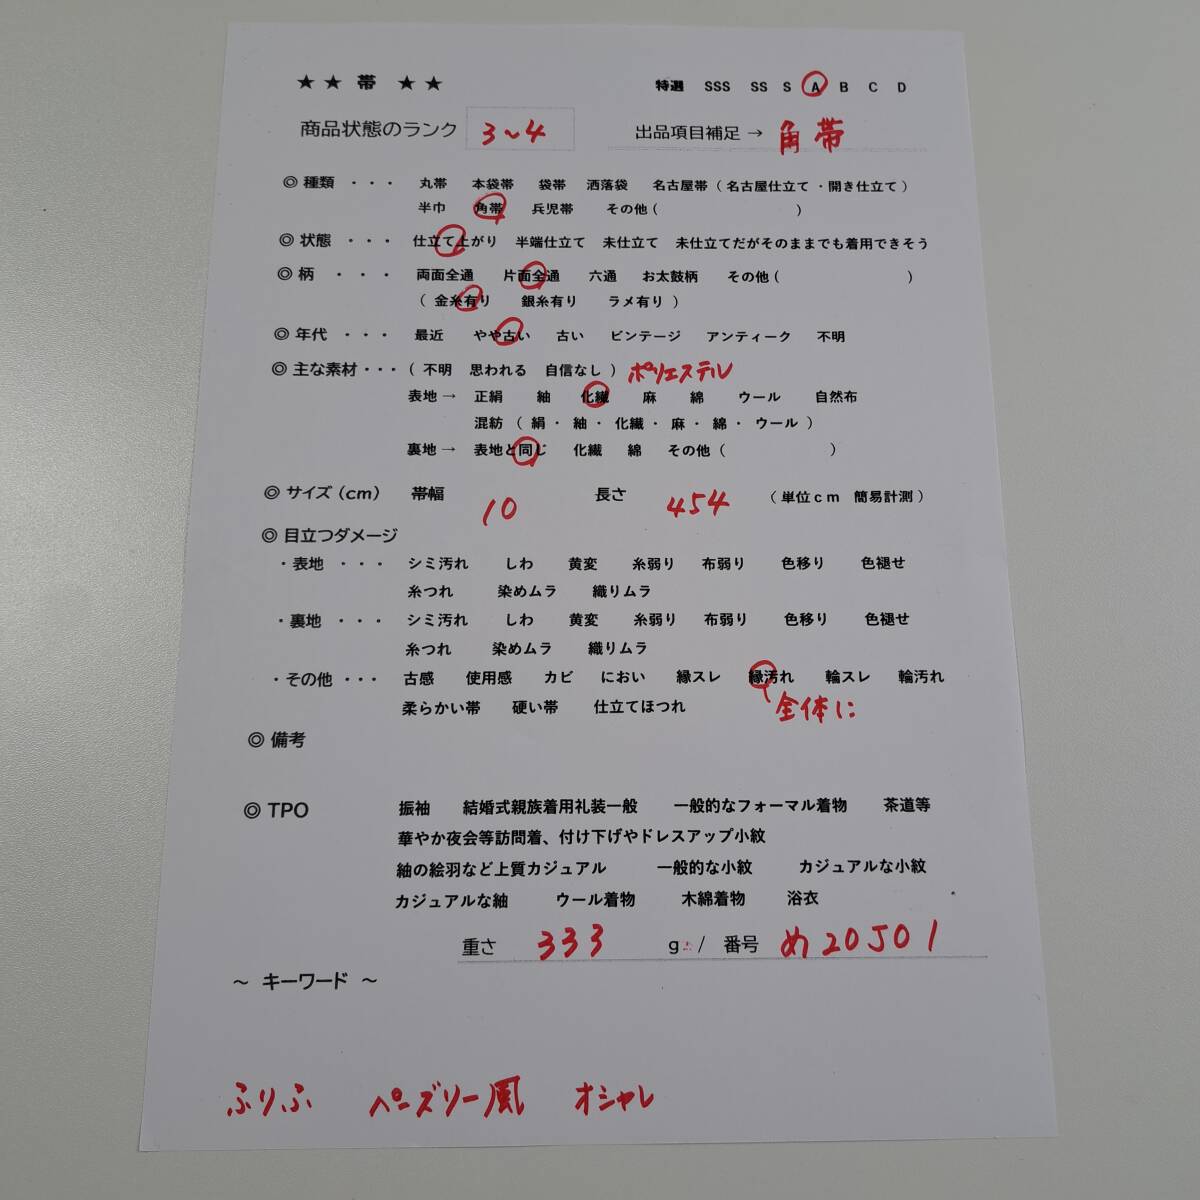 ★★ 帯 ★★ 特選 SSS SS S A B C D
商品状態のランク 3~4 出品項目補足→ 角帯
◎ 種類 ・・・ 丸帯 本袋帯 袋帯 洒落袋 名古屋帯 (名古屋仕立て ・開き仕立て)
半巾 角帯 兵児帯 その他 ( )
◎ 状態 ・・・ 仕立て上がり 半端仕立て 未仕立て 未仕立てだがそのままでも着用できそう
◎ 柄 ・・・ 両面全通 片面全通 六通 お太鼓柄 その他 ( )
( 金糸有り 銀糸有り ラメ有り )
◎ 年代 ・・・ 最近 やや古い 古い ビンテージ アンティーク 不明
◎ 主な素材・・・ ( 不明 思われる 自信なし ) ポリエステル
表地→ 正絹 紬 化繊 麻 綿 ウール 自然布
混紡 ( 絹・ 紬・ 化繊・ 麻・ 綿・ ウール )
裏地→ 表地と同じ 化繊 綿 その他 ( )
◎ サイズ (cm) 帯幅 10 長さ 454 (単位cm 簡易計測)
◎ 目立つダメージ
・表地 ・・・ シミ汚れ しわ 黄変 糸弱り 布弱り 色移り 色褪せ
糸つれ 染めムラ 織りムラ
・裏地 ・・・ シミ汚れ しわ 黄変 糸弱り 布弱り 色移り 色褪せ
糸つれ 染めムラ 織りムラ
・その他 ・・・ 古感 使用感 カビ におい 縁スレ 縁汚れ 輪スレ 輪汚れ
柔らかい帯 硬い帯 仕立てほつれ 全体に
◎ 備考
◎ TPO 振袖 結婚式親族着用礼装一般 一般的なフォーマル着物 茶道等
華やか夜会等訪問着、付け下げやドレスアップ小紋
紬の絵羽など上質カジュアル 一般的な小紋 カジュアルな小紋
カジュアルな紬 ウール着物 木綿着物 浴衣
重さ 333 g / 番号 め20J01
~ キーワード ~
ふりふ ペーズリー風 オシャレ